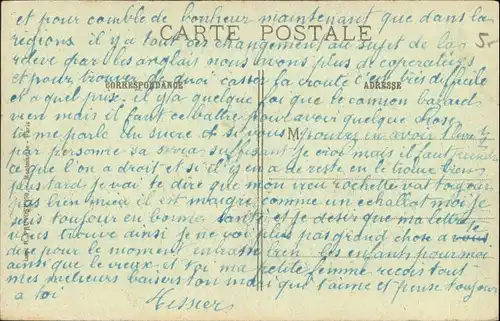 et pour comble de bonheur maintenant que dans la
régions il y a tout ces changement au sujet de la
CARTE POSTALE
relève par les anglais nous avons plus de coperatives
et pour trouver de quoi casser la croute c'est très dificile
CORRESPONDANCE
ADRESSE
et a quel prix. il y a quelque fois que le camion bazard
vien mais il faut ce battre pour avoir quelque chose
tu me parle du sucre et si vous pouvez en avoir 1 livre
M
par personne sa serais suffisant je crois mais il faut prendre
ce que l'on a droit et si il y en a de reste on le trouve bien
plus tard je vai te dire que mon vieu rochette vat toujour
pas bien mieu il est maigre comme un echallat moi je
suis toujour en bonne santé et je desir que ma lettre
vous trouve ainsi je ne voi plus pas grand chose a vous
dire pour le moment enbrasse bien les enfants pour moi
ainsi que le vieux et toi ma petite femme recois tout
mes meilleurs baisers ton mari qui t'aime et pense toujour
a toi
5